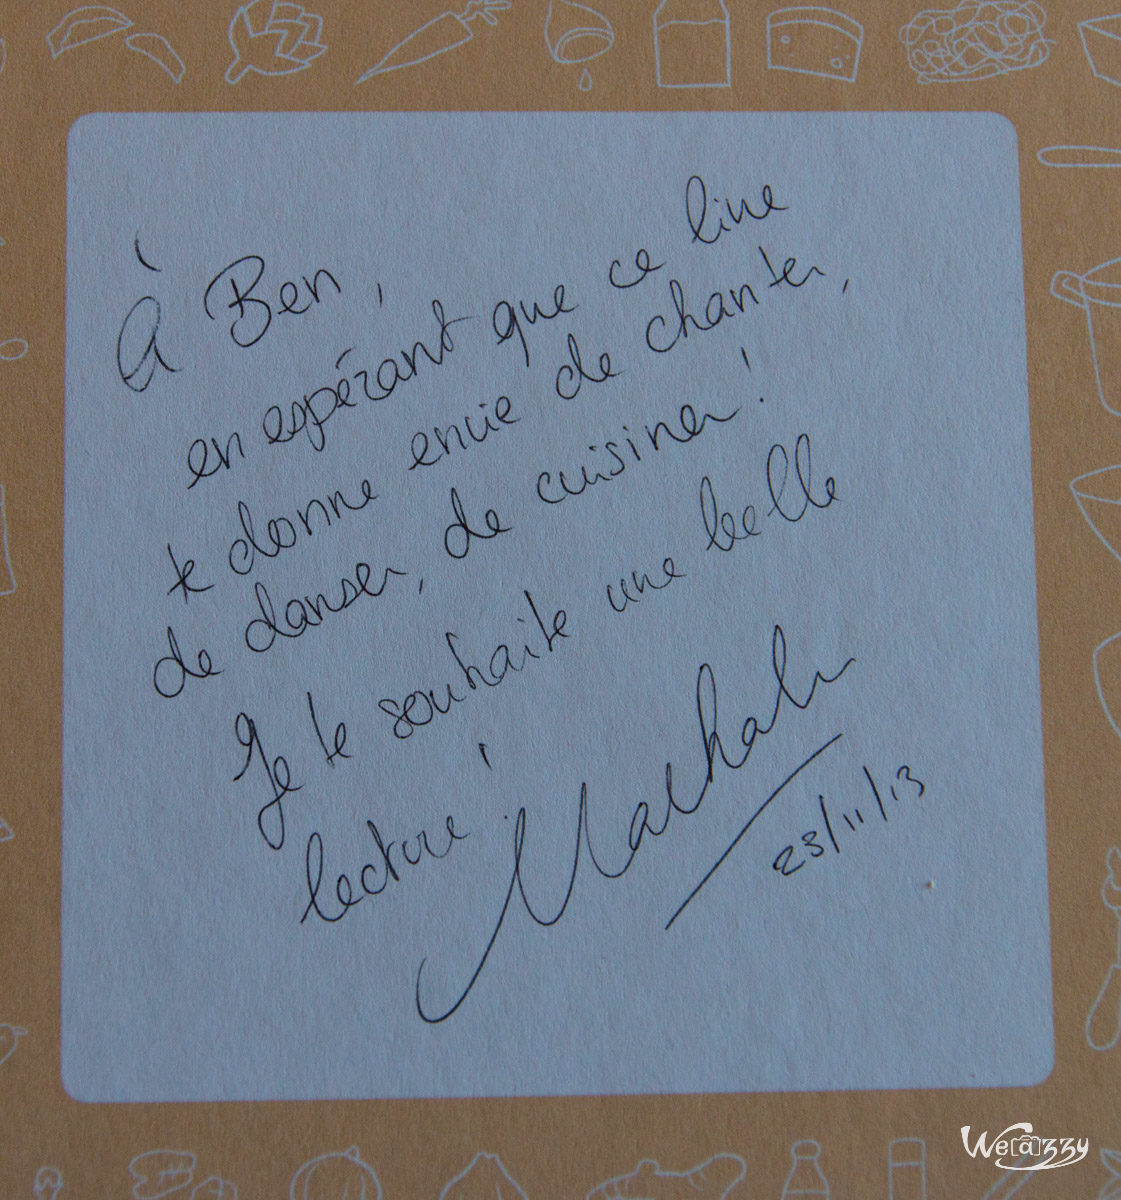 À Ben,
en espérant que ce livre
te donne envie de chanter,
de danser, de cuisiner !
Je te souhaite une belle
lecture !
23/11/13
Weazzy